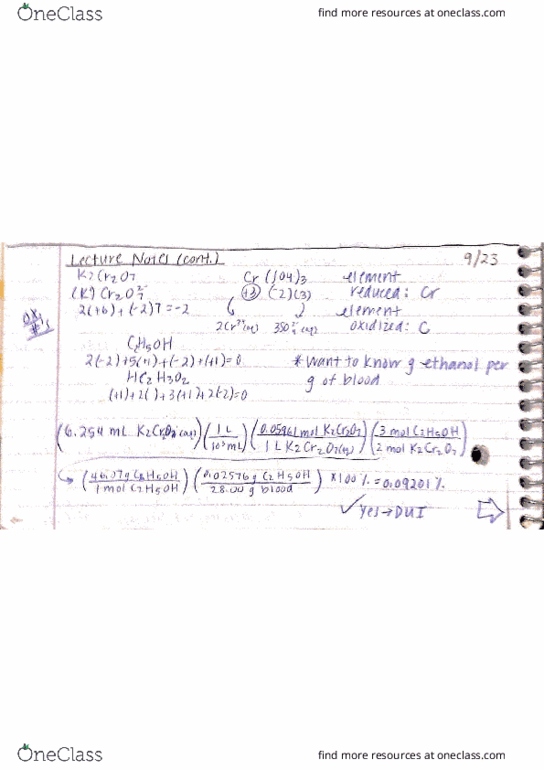 OneClass
find more resources at oneclass.com
Lecture Notes (cont.) 9/23
K2Cr2O7 Cr(SO4)3 element
(K) Cr2O7 2- (+3) (-2)(3) reduced: Cr
2(+6)+(-2)7=-2 element
ox. #'s 2Cr3+(aq) 3SO4 2-(aq) oxidized: C
C2H5OH
2(-2)+5(+1)+(-2)+(+1)=0 *Want to know g ethanol per
HC2H3O2 g of blood
(+1)+2( )+3(+1)+2(-2)=0
(6.254 mL K2Cr2O7(aq)) (1 L / 10^3 mL) (0.05961 mol K2Cr2O7 / 1 L K2Cr2O7(aq)) (3 mol C2H5OH / 2 mol K2Cr2O7)
(46.07g C2H5OH / 1 mol C2H5OH) (0.02576 g C2H5OH / 28.00 g blood) × 100% = 0.09201%
✓ Yes→DUI
OneClass
find more resources at oneclass.com